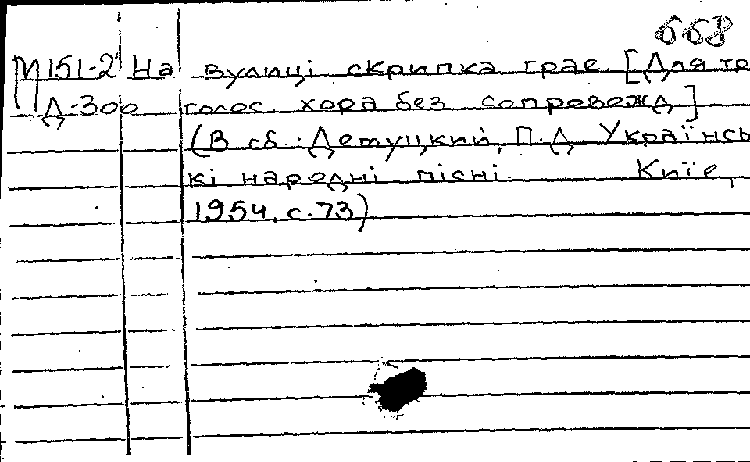 668
М151-2 На вулиці скрипка грає. [Для тр
Д-300 голос. хора без сопровожд]
(В сб. Демуцкий, П.Д. Українсь
кі народні пісні. Київ,
1954, с.73)